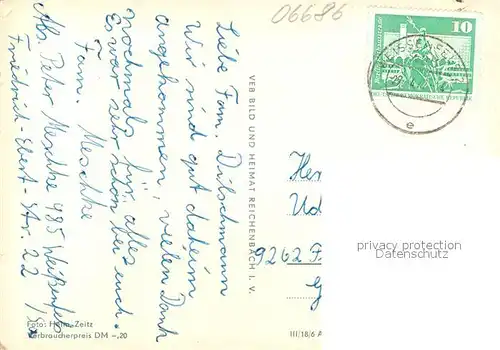 06686
10
WEISSENFELS
e
Liebe Fam. Dilschmann
Wir sind gut daheim
angekommen, vielen Dank
nochmals für alles
Es war sehr schön bei euch.
Fam. Meschke
Abs. Peter Meschke 485 Weißenfels
Friedrich-Ebert-Str. 22
VEB BILD UND HEIMAT REICHENBACH I. V.
Her
Ud
9262 F
privacy protection
Datenschutz
Foto: Hahn, Zeitz
Verbraucherpreis DM -,20
III/18/6 A